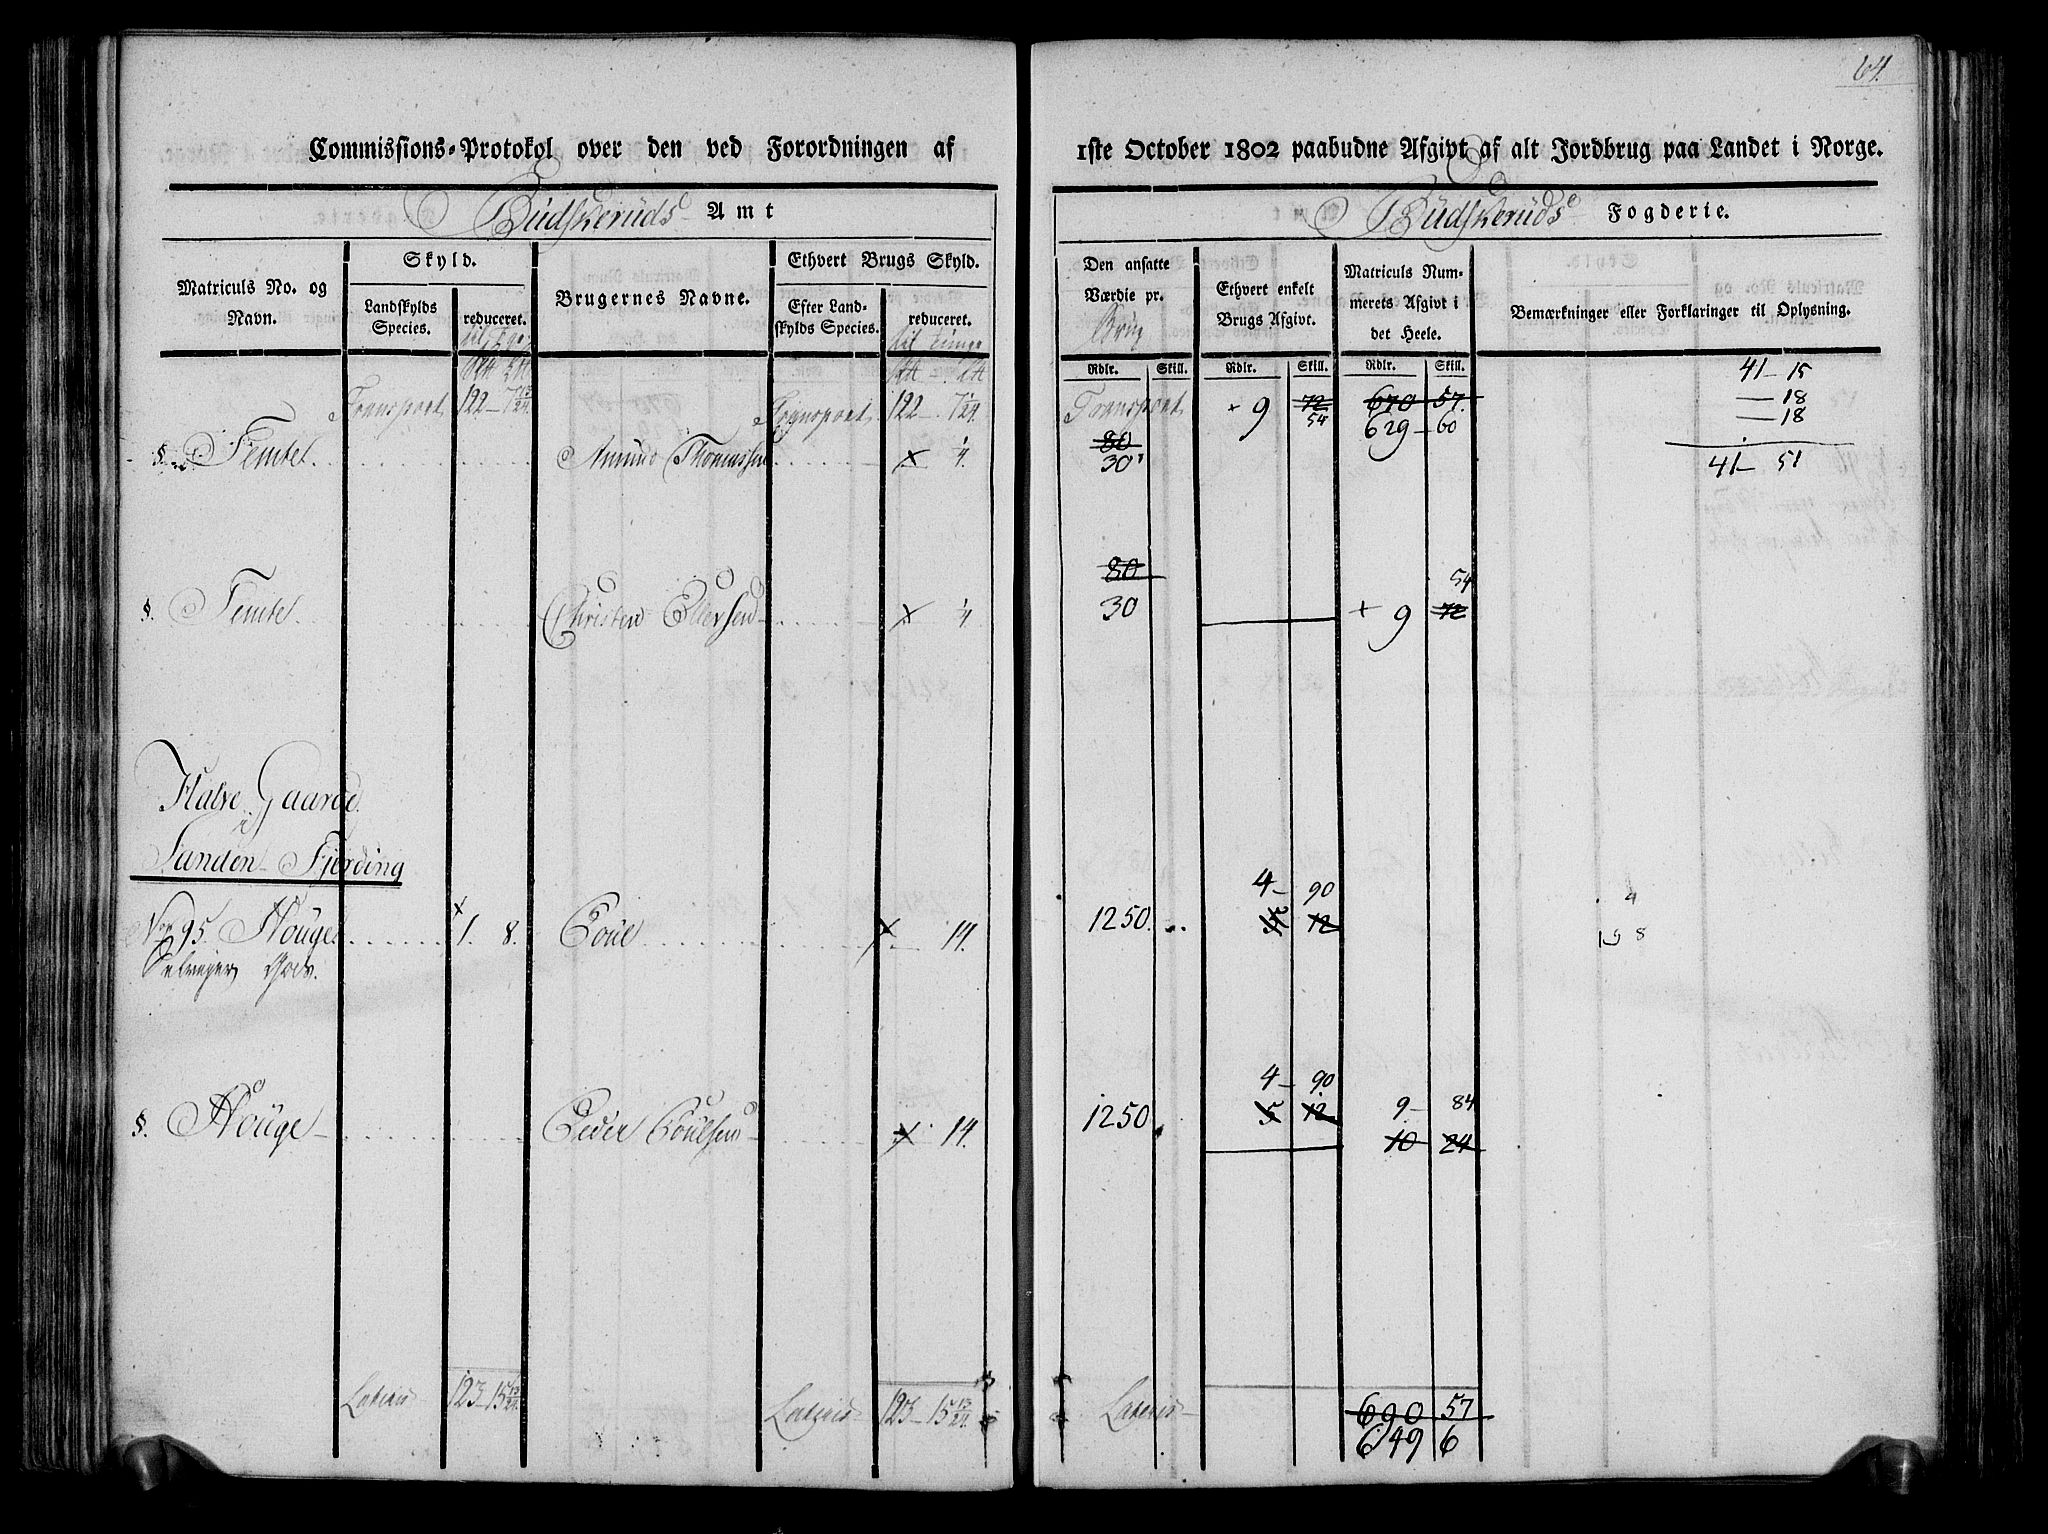 64.
Commissions-Protokol over den ved Forordningen af 1ste October 1802 paabudne Afgivt af alt Jordbrug paa Landet i Norge.
Budskeruds Amt
Budskeruds Fogderie.
Matriculs No. og Navn.
Skyld.
Landskylds Species.
reduceret.
Brugernes Navne.
Ethvert Brugs Skyld.
Efter Landskylds Species.
reduceret.
Den ansatte Værdie pr. Brug
Ethvert enkelt Brugs Afgivt.
Matriculs Nummerets Afgivt i det Heele.
Bemærkninger eller Forklaringer til Oplysning.
Rdlr. Skill. Rdlr. Skill. Rdlr. Skill.
Transport 122 – 7 13/24 Transport 122 – 7 1/24 Transport 9 72 54 670 57. 629 – 60
41 – 15
— 18
— 18
41 – 51
§. Temtet Amund Thomassen × 1/4. 80 30
§. Temtet Christen Ellersen × 1/4 80 30 + 9 72 54
Halve Gaarde
i
Sanden Fjerding
No 95 Houge × 1. 8. Poul × 14. 1250. 4 – 90 5 12
§. Houge Peder Poulsen × 14. 1250 4 – 90 5 12 9 – 84 10 24
Lateris 123 – 15 13/24 Lateris 123 – 15 13/24. Lateris 690 57
649 6